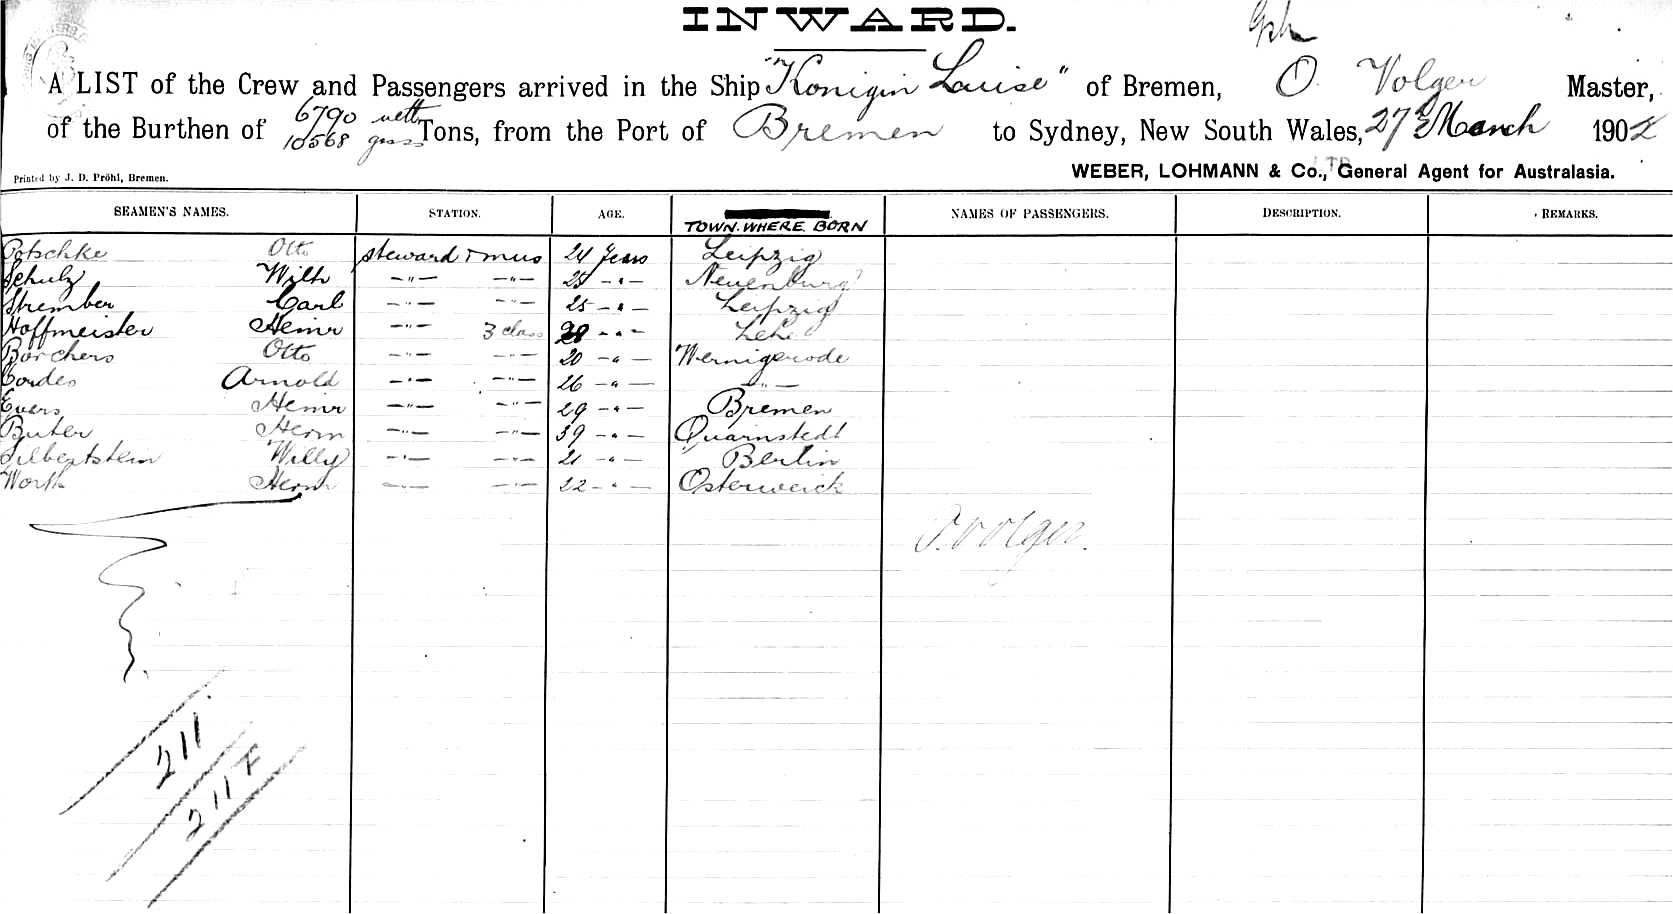 INWARD.
A LIST of the Crew and Passengers arrived in the Ship "Konigin Luise" of Bremen, O. Volger Master,
of the Burthen of 6790 nett 10568 gross Tons, from the Port of Bremen to Sydney, New South Wales, 27 March 1902
WEBER, LOHMANN & Co., LTD General Agent for Australasia.
Printed by J. D. Pröhl, Bremen.
SEAMEN'S NAMES. STATION. AGE. TOWN. WHERE BORN NAMES OF PASSENGERS. DESCRIPTION. REMARKS.
Potschke Otto steward & mus 24 Years Leipzig
Schulz Wilh -"- -"- 25 -"- Neuenburg
Strember Carl -"- -"- 25 -"- Leipzig
Hoffmeister Heinr -"- 3 class 28 -"- Lehe
Borchers Otto -"- -"- 20 -"- Wernigerode
Cordes Arnold -"- -"- 26 -"- -"-
Evers Heinr -"- -"- 29 -"- Bremen
Buter Herm -"- -"- 39 -"- Quarnstedt
Silbertstein Willy -"- -"- 21 -"- Berlin
Worth Herm -"- -"- 22 -"- Osterwieck
O. Volger.
211
211